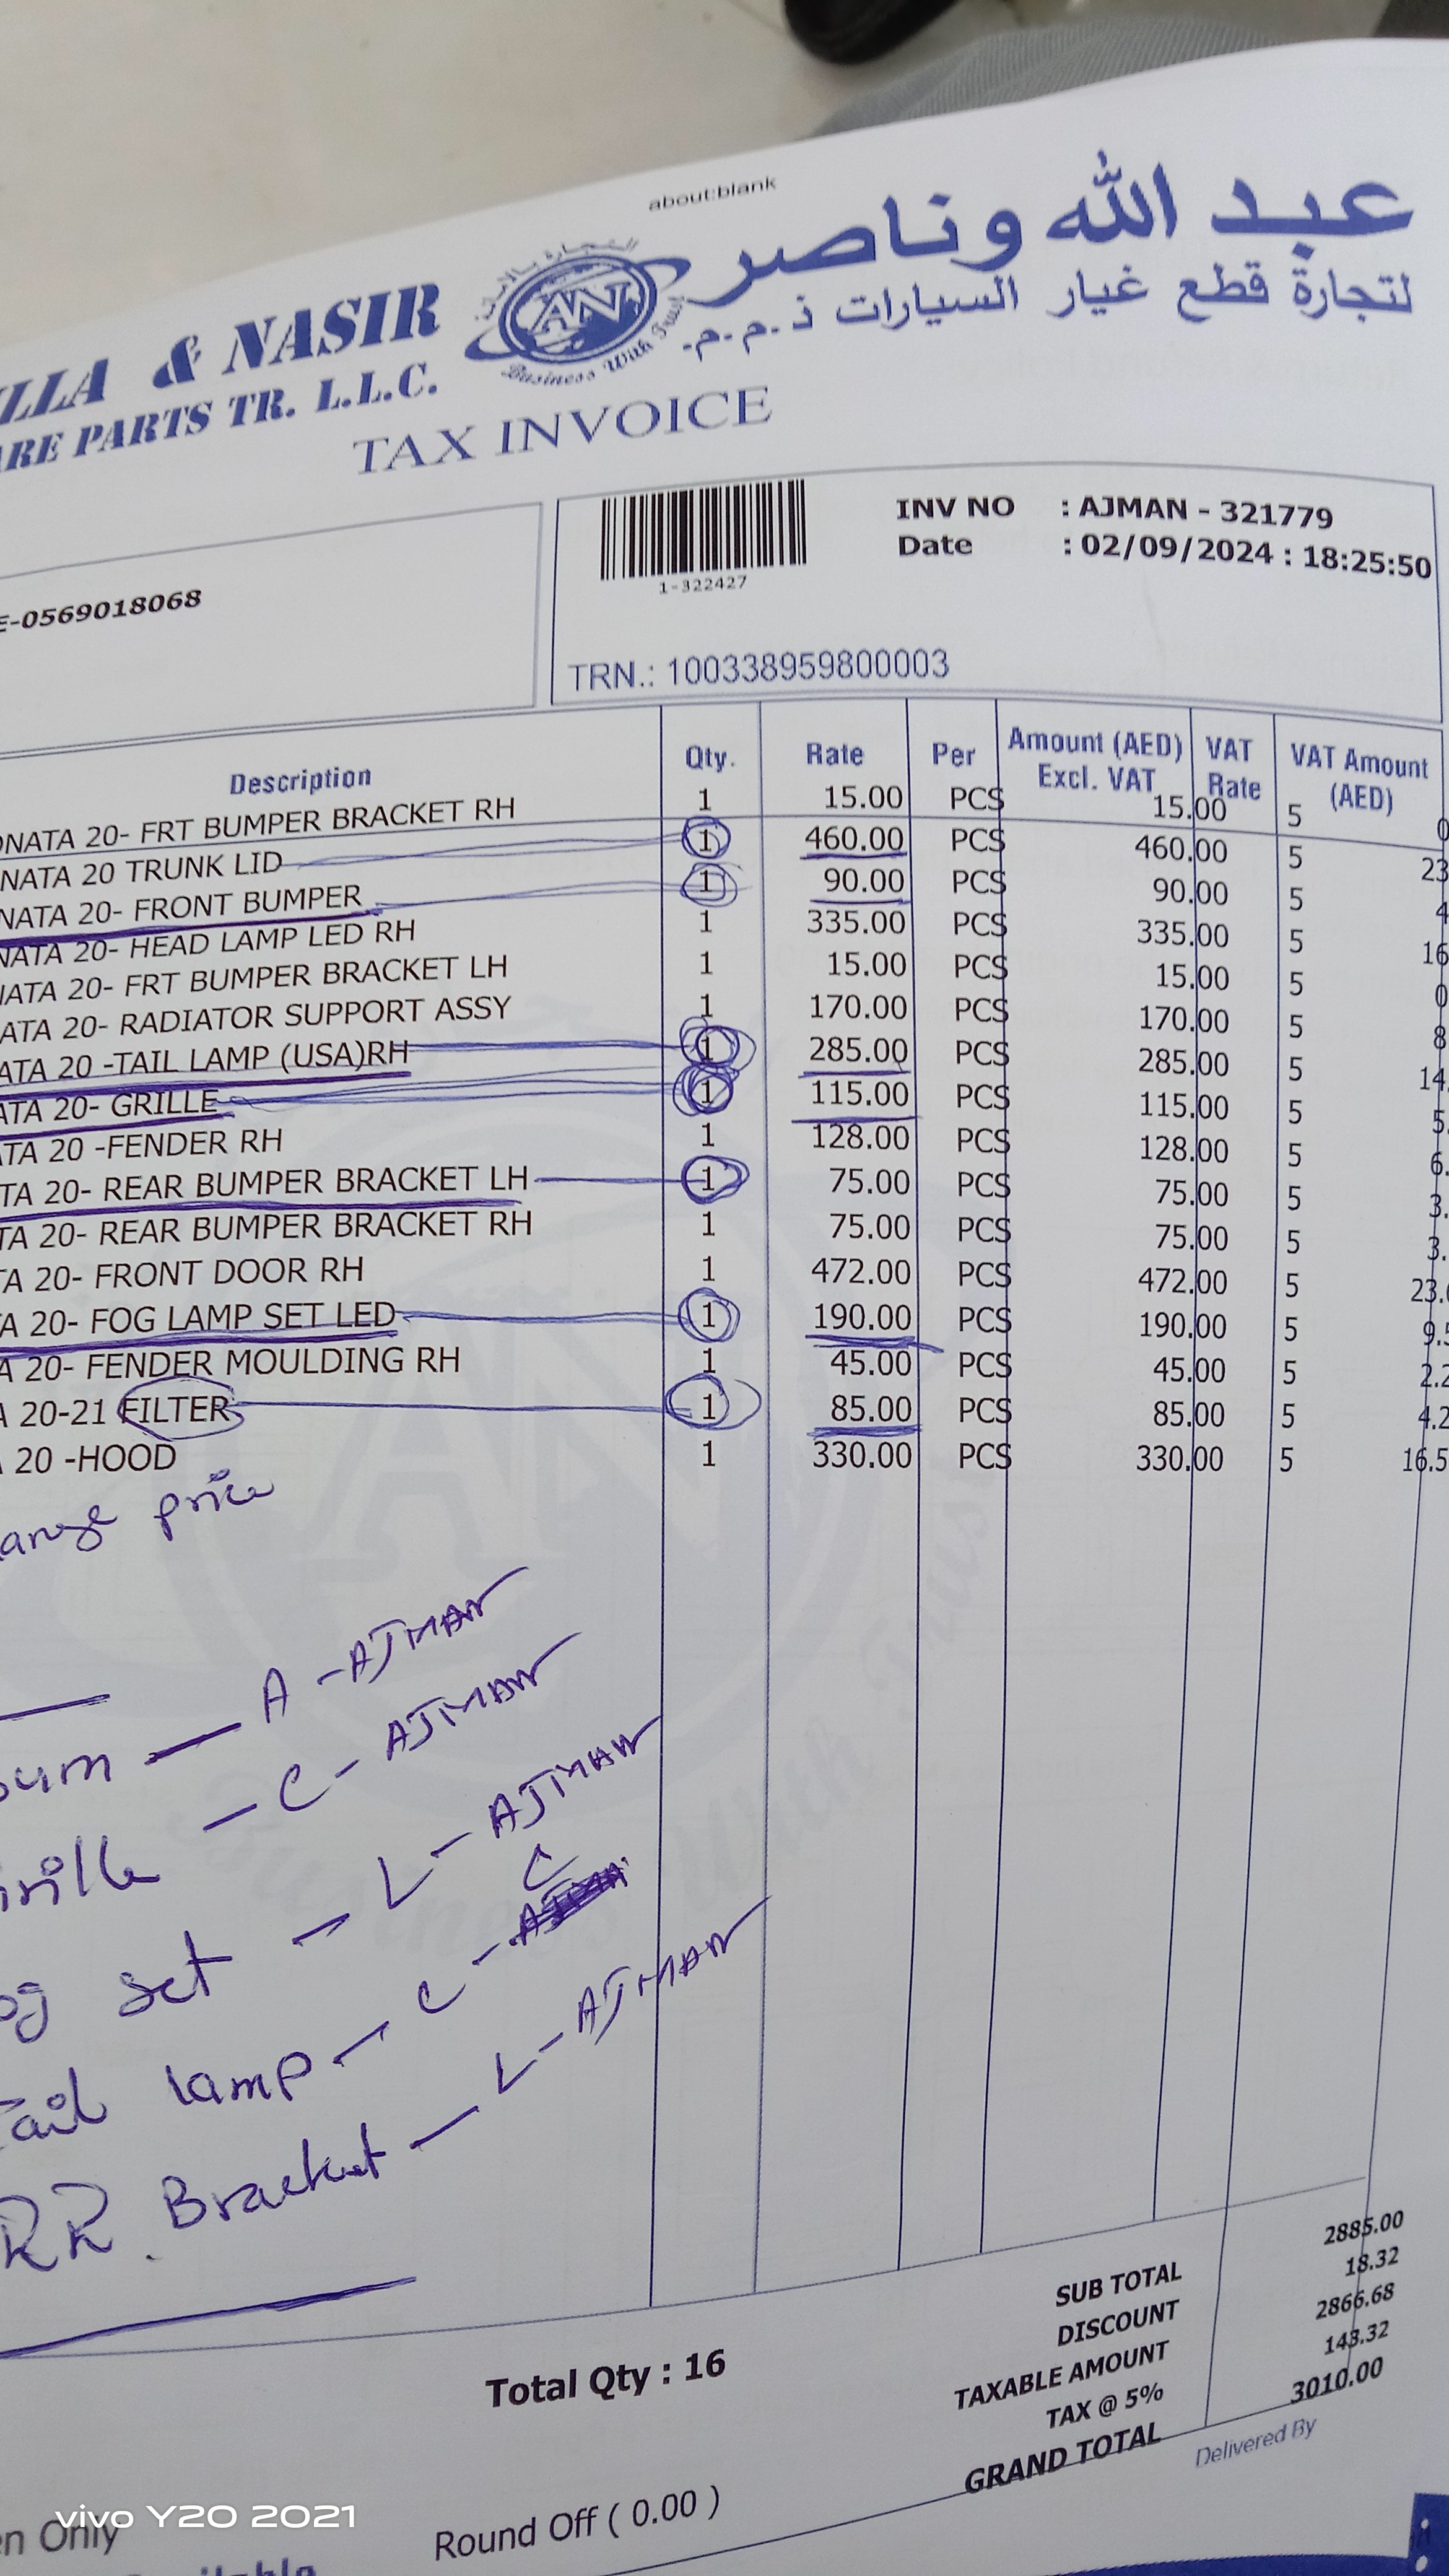 about:blank
عبد الله وناصر
لتجارة قطع غيار السيارات ذ.م.م.
LLA & NASIR
ARE PARTS TR. L.L.C.
AN
Business With Trust
TAX INVOICE
INV NO : AJMAN - 321779
Date : 02/09/2024 : 18:25:50
1-322427
E-0569018068
TRN.: 100338959800003
Description Qty. Rate Per Amount (AED) Excl. VAT VAT Rate VAT Amount (AED)
ONATA 20- FRT BUMPER BRACKET RH 1 15.00 PCS 15.00 5 0
NATA 20 TRUNK LID 1 460.00 PCS 460.00 5 23
NATA 20- FRONT BUMPER 1 90.00 PCS 90.00 5 4
NATA 20- HEAD LAMP LED RH 1 335.00 PCS 335.00 5 16
NATA 20- FRT BUMPER BRACKET LH 1 15.00 PCS 15.00 5 0
ATA 20- RADIATOR SUPPORT ASSY 1 170.00 PCS 170.00 5 8
ATA 20 -TAIL LAMP (USA)RH 1 285.00 PCS 285.00 5 14.
ATA 20- GRILLE 1 115.00 PCS 115.00 5 5.
TA 20 -FENDER RH 1 128.00 PCS 128.00 5 6.
TA 20- REAR BUMPER BRACKET LH 1 75.00 PCS 75.00 5 3.
TA 20- REAR BUMPER BRACKET RH 1 75.00 PCS 75.00 5 3.
TA 20- FRONT DOOR RH 1 472.00 PCS 472.00 5 23.
A 20- FOG LAMP SET LED 1 190.00 PCS 190.00 5 9.5
A 20- FENDER MOULDING RH 1 45.00 PCS 45.00 5 2.2
A 20-21 FILTER 1 85.00 PCS 85.00 5 4.2
20 -HOOD 1 330.00 PCS 330.00 5 16.5
ange price
bum — A - AJMAN
rille — C - AJMAN
og set — L - AJMAN
C
Tail lamp — C -
RR. Bracket — L - AJMAN
SUB TOTAL 2885.00
DISCOUNT 18.32
TAXABLE AMOUNT 2866.68
TAX @ 5% 143.32
GRAND TOTAL 3010.00
Total Qty : 16
Delivered By
Round Off ( 0.00 )
en Only
vivo Y20 2021